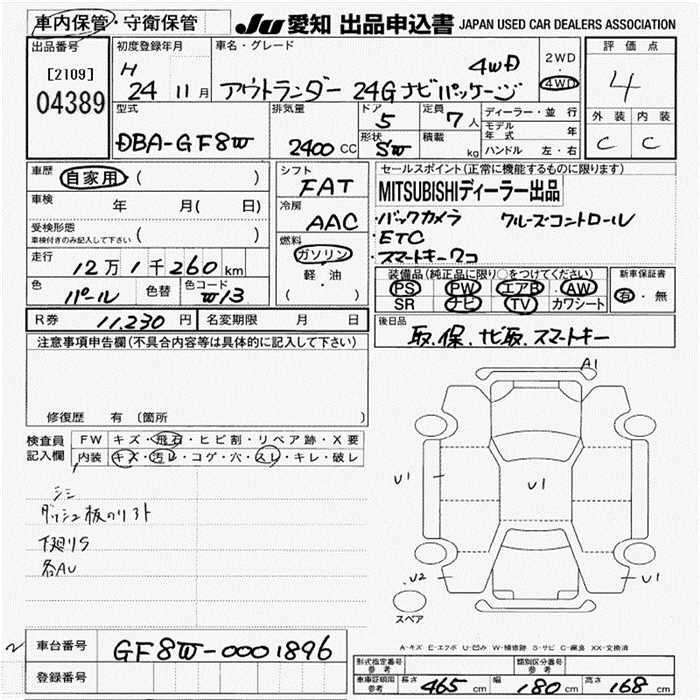 車内保管・守衛保管
JU 愛知 出品申込書 JAPAN USED CAR DEALERS ASSOCIATION
出品番号
[2109]
04389
初度登録年月
H
24 11月
車名・グレード
4WD
アウトランダー 24G ナビパッケージ
2WD
・
4WD
評価点
4
外装 内装
C C
型式
DBA-GF8W
排気量
2400 CC
ドア
5
形状
SW
定員
7人
積載
kg
ディーラー・並行
モデル年式 年
ハンドル 左・右
車歴 自家用 ( )
車検 年 月( 日)
受検形態
車検付きのみ記入して下さい ( )
走行 12万 1千260km
色 パール 色替 色コード W13
シフト
FAT
冷房
AAC
燃料
ガソリン
軽・油
( )
セールスポイント(正常に機能するものに限ります)
MITSUBISHIディーラー出品
・バックカメラ クルーズコントロール
・ETC
・スマートキー2コ
装備品(純正品に限り○をつけてください)
PS PW エアB AW
SR ナビ TV カワシート
新車保証書
有・無
R券 11,230円 名変期限 月 日
後日品
取、保、ナビ取、スマートキー
注意事項申告欄(不具合内容等は具体的に記入して下さい)
修復歴 有 (箇所
検査員記入欄
FW キズ・飛石・ヒビ割・リペア跡・X要
内装 キズ・汚レ・コゲ・穴・スレ・キレ・破レ
シミ
ダッシュ板のリフト
下廻りS
各AU
A1
U1
U1
U2
U1
スペア
A-キズ E-エクボ U-凹み W-補修跡 S-サビ C-腐食 XX-交換済
車台番号 GF8W-0001896
登録番号
形式指定番号 参考
類別区分番号 参考
車庫証明用 参考 長さ 465cm 幅 180cm 高さ 168cm